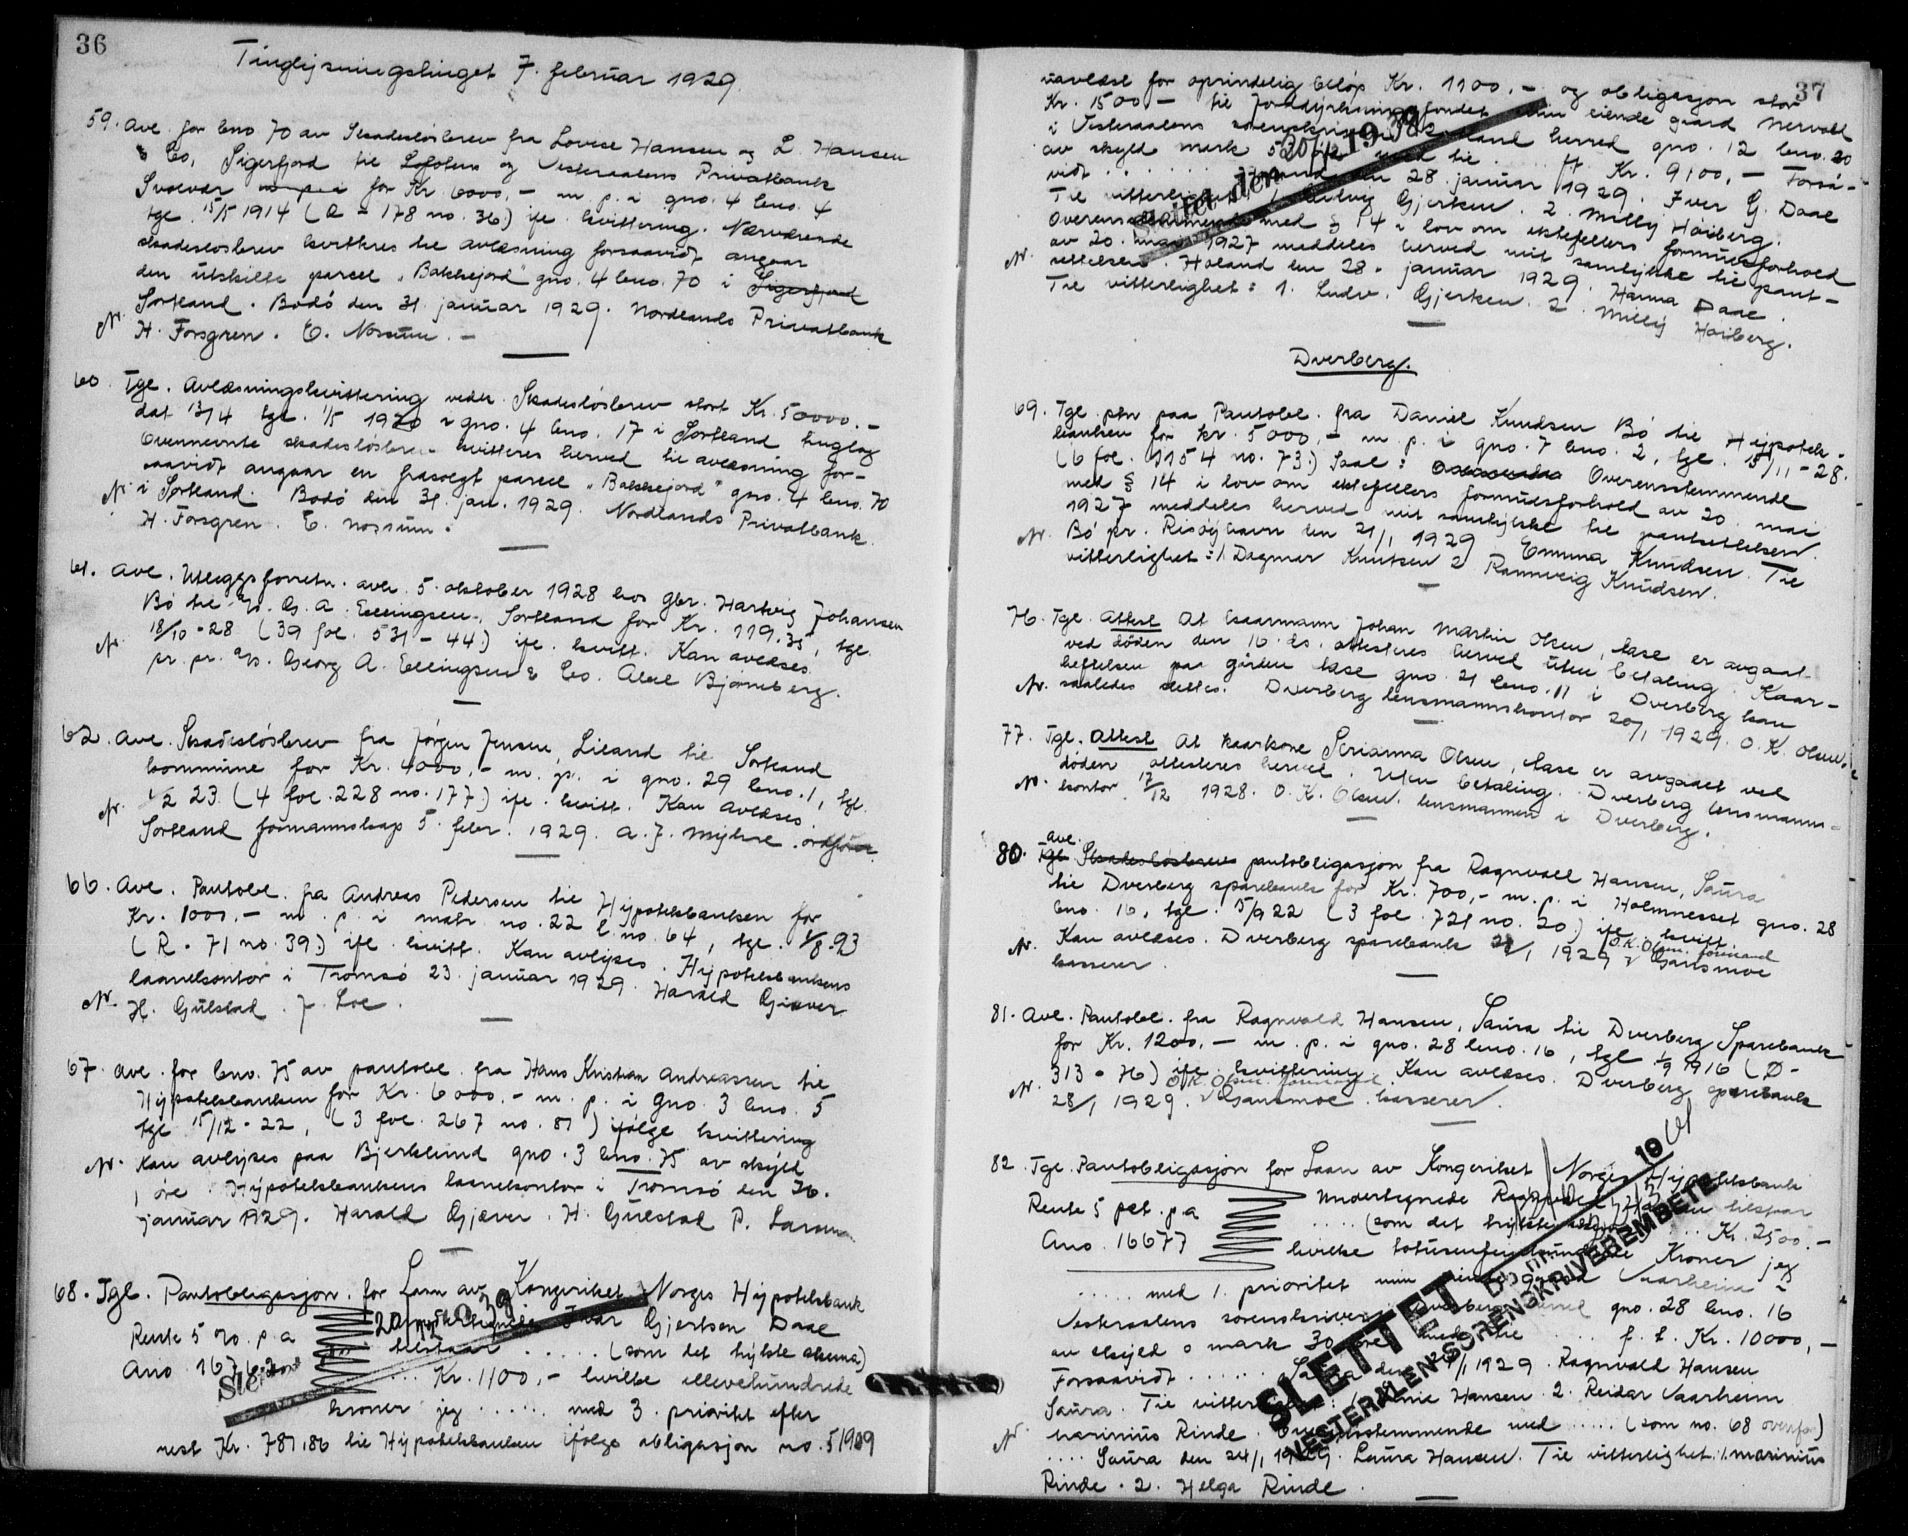 36
Tinglysningstinget 7. februar 1929.
59. Avl. for bno 70 av Skadesløsbrev fra Lovise Hansen og L. Hansen
& Co, Sigerfjord til Lofotens og Vesteraalens Privatbank
Svolvær for Kr. 6000,- m. p. i gno. 4 bno. 4
tgl. 15/5 1914 (Q - 178 no. 36) ifl. kvittering. Nærværende
skadesløsbrev kvitteres til avlæsning forsaavidt angaar
den utskilte parcel "Bakkejord" gno. 4 bno. 70 i Sigerfjord
Sortland. Bodø den 31 januar 1929. Nordlands Privatbank
N. H. Forsgren. E. Nossum. -
60. Tgl. Avlæsningskvittering vedr. Skadesløsbrev stort Kr. 50000.-
dat 13/4 tgl. 1/5 1920 i gno. 4 bno. 17 i Sortland tinglag
Ovennevnte skadesløsbrev kvitteres herved til avlæsning for-
saavidt angaar en frasolgt parcel "Bakkejord" gno. 4 bno. 70
N. i Sortland. Bodø den 31 jan. 1929. Nordlands Privatbank
H. Forsgren. E. Nossum.
61. Avl. Utleggsforretn. avh. 5. oktober 1928 hos gbr. Hartvig Johansen
Bø til A/S. G. A. Ellingsen, Sortland for Kr. 119.35, tgl.
N. 18/10-28 (39 fol. 531-44) ifl. kvitt. Kan avlæses
pr. pr. A/S. Georg A. Ellingsen & Co. Aksel Bjørneberg.
62. Avl. Skadesløsbrev fra Jørgen Jensen, Liland til Sortland
kommune for Kr. 4000,- m. p. i gno. 29 bno. 1, tgl.
N. 1/2 23 (4 fol. 228 no. 177) ifl. kvitt. Kan avlæses.
Sortland formannskap 5. febr. 1929. A. J. Myhre. ordfører
66. Avl. Pantobl. fra Andreas Pedersen til Hypotekbanken for
Kr. 1000,- m. p. i matr. no. 22 l. no. 64, tgl. 1/8-93
(R - 71 no. 39) ifl. kvitt. Kan avlyses. Hypotekbankens
laanekontor i Tromsø 23. januar 1929. Harald Giæver
N. H. Gulstad. J. Loe.
67. Avl. for bno. 75 av pantobl. fra Hans Kristian Andreassen til
Hypotekbanken for Kr. 6000.- m. p. i gno. 3 bno. 5
tgl 15/12-22, (3 fol. 267 no. 87) ifølge kvittering
N. Kan avlyses paa Bjerklund gno. 3 bno. 75 av skyld
1 øre. Hypotekbankens laanekontor i Tromsø den 26.
januar 1929. Harald Gjæver. H. Gulstad P. Larsen
68. Tgl. Pantobligasjon. for Laan av Kongeriket Norges Hypotekbank
Rente 5 o/o. p. a Ivar Gjertsen Daae
Ano 167 tilstaar ..... (som det trykte skema)
... Kr. 1100,- hvilke ellevehundrede
kroner jeg ..... med 3. prioritet efter
rest Kr. 787,86 til Hypotekbanken ifølge obligasjon no. 51909
37
navelse for oprindelig beløp Kr. 1100.- og obligasjon stor
Kr. 1500,- til Jorddyrkningsfondet min eiende gaard Nervoll
i Vesteraalens sorenskriveri herred gno. 12 bno. 20
av skyld mark til .... ft Kr. 9100,- Forsa-
vidt .... den 28. januar 1929. Iver G. Daae
Til vitterlighet: Ludvig Gjertsen. 2. Milly Høiberg.
Overensstemmende med § 14 i lov om ektefellers formuesforhold
N. av 20. mai 1927 meddeles herved mitt samtykke til pant-
settelsen. Holand den 28. januar 1929. Hanna Daae.
Til vitterlighet: 1. Ludv. Gjertsen. 2. Milly Høiberg.
Dverberg.
69. Tgl. ptn paa Pantobl. fra Daniel Knudsen Bø til Hypotek-
banken for kr. 5000,- m. p. i gno. 7 bno. 2, tgl. 15/11-28.
(6 fol. 1154 no. 73) Saal: Overensstemmende
med § 14 i lov om ektefellers formuesforhold av 20 mai
1927 meddeles herved mit samtykke til pantsettelsen.
N. Bø pr. Risøyhavn den 21/1 1929 Emma Knudsen. Til
vitterlighet: 1. Dagmar Knutsen 2 Rannveig Knudsen.
76. Tgl. Attest At kaarmann Johan Martin Olsen, Aase er avgaat
ved døden den 16. ds. attesteres herved uten betaling. Kaar-
heftelsen paa gården Aase gno. 21 bno. 11 i Dverberg kan
N. saaledes slettes. Dverberg lensmannskontor 20/1 1929. O. K. Olsen.
77. Tgl. Attest At kaarkone Serianna Olsen, Aase er avgaaet ved
døden attesteres herved. Uten betaling. Dverberg lensmanns-
N. kontor 17/12 1928. O. K. Olsen. lensmannen i Dverberg.
80. Tgl avl. Skadesløsbrev pantobligasjon fra Ragnvald Hansen, Saura
til Dverberg sparebank for Kr. 700,- m. p. i Holmnesset gno. 28
bno. 16, tgl. 5/9 22 (3 fol. 721 no. 20) ifl. kvitt.
N. Kan avlæses. Dverberg sparebank 28/1 1929 O. K. Olsen. formand Gansmoe
kasserer.
81. Avl. Pantobl. fra Ragnvald Hansen, Saura til Dverberg Sparebank
for Kr. 1200,- m. p. i gno. 28 bno. 16, tgl 1/9 1916 (Ø-
313 - 76) ifl. kvittering. Kan avlæses. Dverberg sparebank
N. 28/1 1929. O. K. Olsen. formand. Gansmoe kasserer.
82. Tgl. Pantobligasjon for Laan av Kongeriket Norges Hypotekbank
Rente 5 pct. p. a Undertegnede tilstaar
Ano. 16677 .... (som det trykte ... Kr. 2500.-
hvilke totusenfemhundrede Kroner jeg
..... med 1. prioritet min i
Vesteraalens sorenskriveri Dverberg herred gno. 28 bno. 16
av skyld 0 mark 30 øre ... f. t. Kr. 10000,-
Forsaavidt ...... Saura den 24/1 1929. Ragnvald Hansen
Saura. Til vitterlighet: Hansen. 2. Reidar Saarheim
N. Marinius Rinde. Overensstemmende med ..... (som no. 68 ovenfor)
.... Saura den 24/1 1929. Laura Hansen. Til vitterlighet: 1. Marinius
Rinde. 2. Helga Rinde.
SLETTET
VESTERÅLEN SORENSKRIVEREMBETE